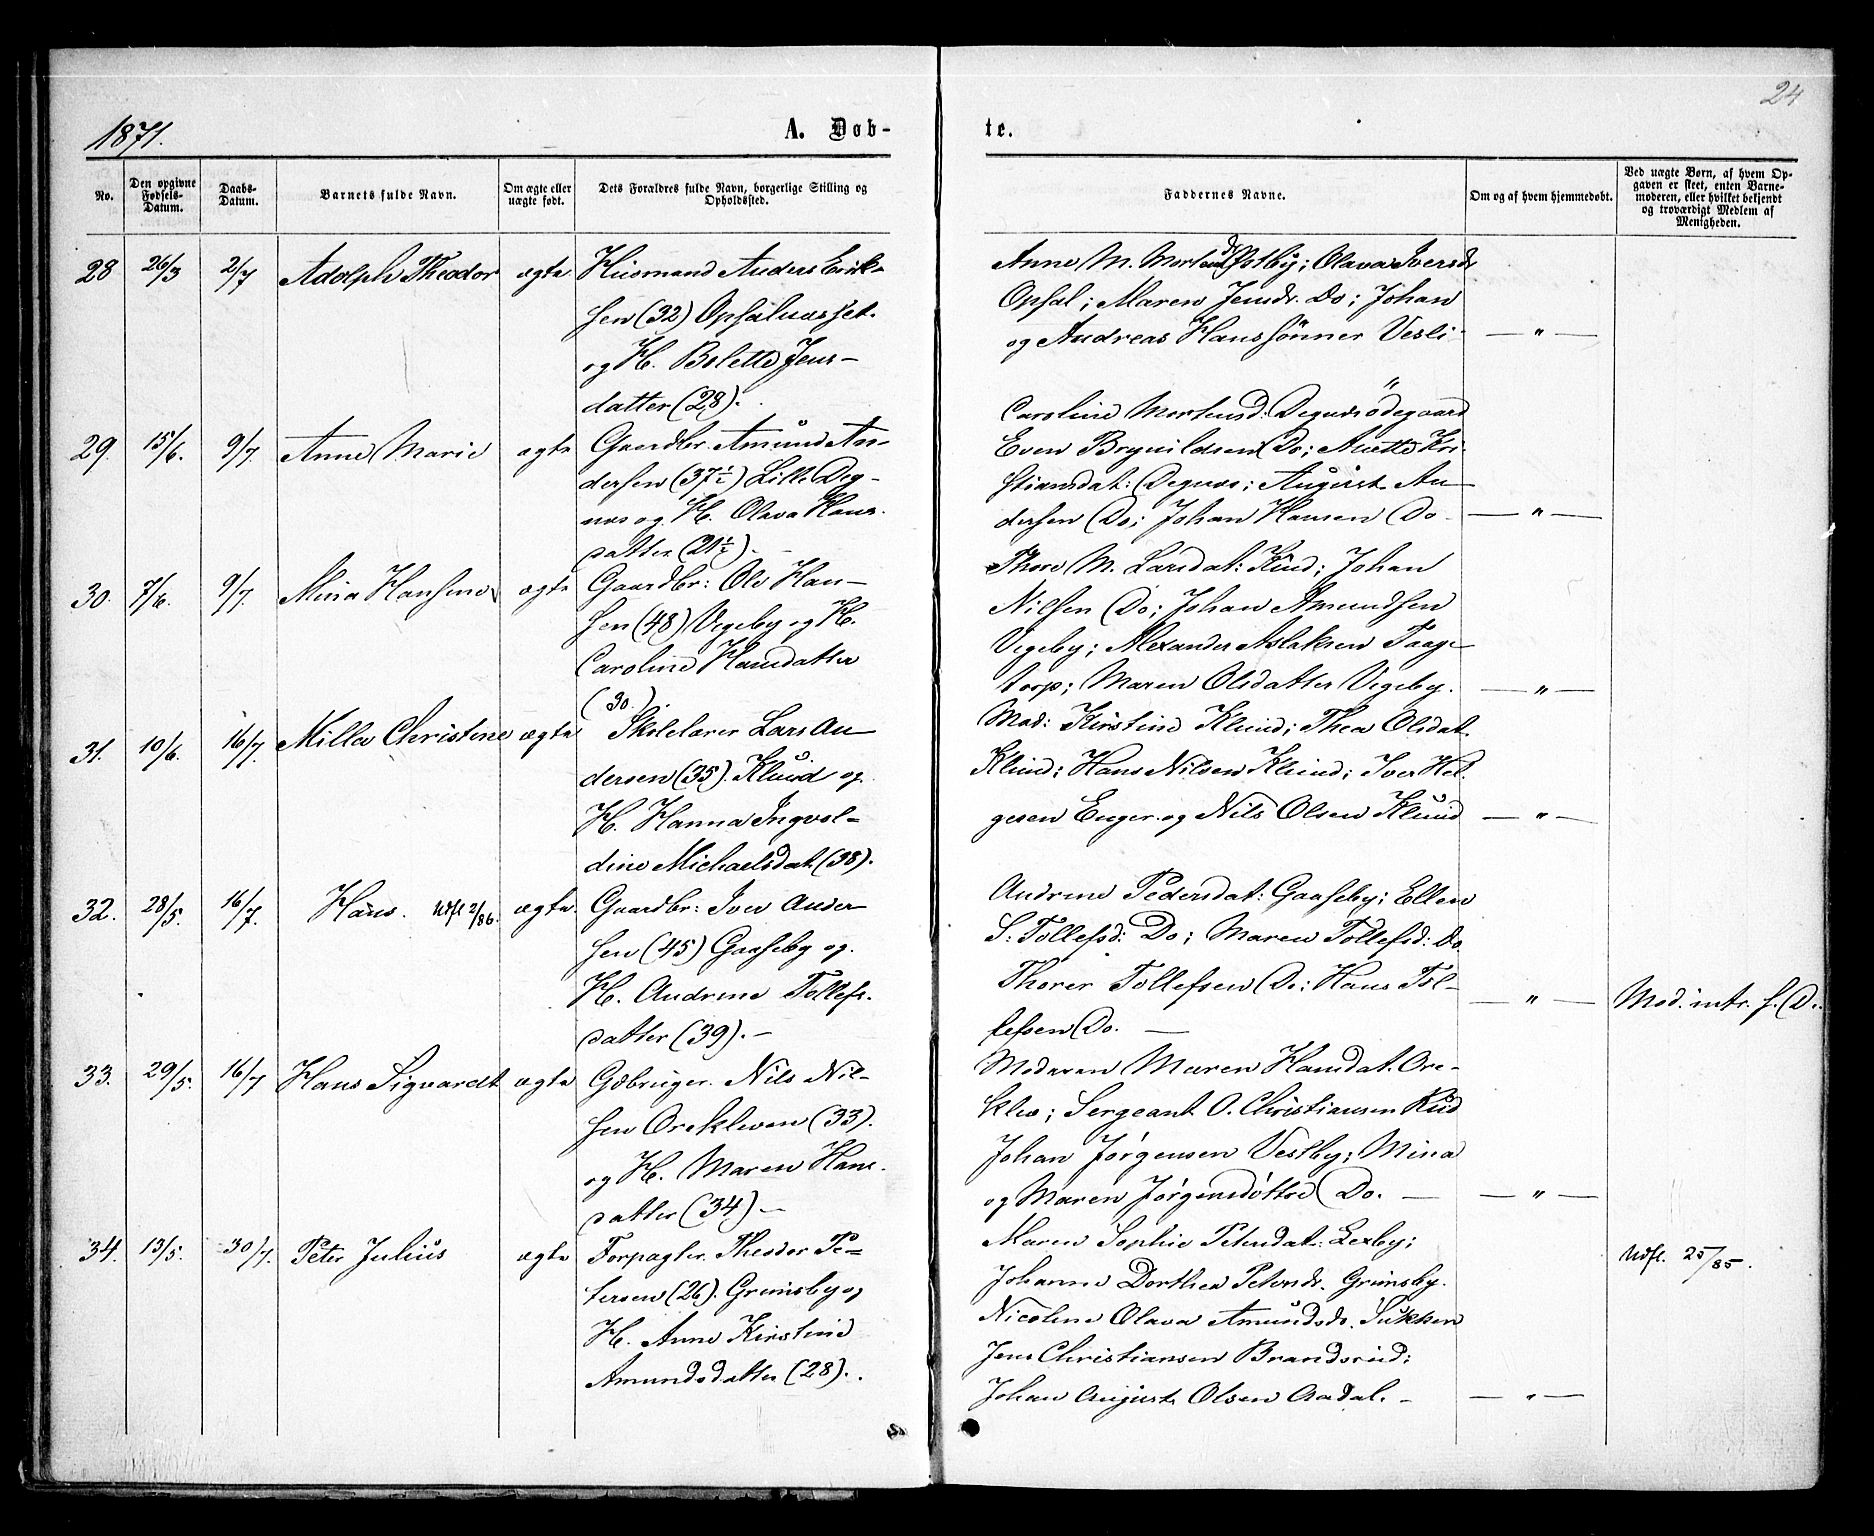 24
1871.
A. Døb-
te.
No.
Den opgivne Fødsels-Datum.
Daabs-Datum.
Barnets fulde Navn.
Om ægte eller uægte født.
Dets Forældres fulde Navn, borgerlige Stilling og Opholdssted.
Faddernes Navne.
Om og af hvem hjemmedøbt.
Ved uægte Børn, af hvem Op-
gaven er skeet, enten Barne-
moderen, eller hvilket bekjendt
og troværdigt Medlem af
Menigheden.
28 26/3 2/7 Adolph Theodor ægte Husmand Anders Erik-
sen (32) Opsal
og H. Bolette Jens-
datter (28).
Anne M. Østby; Olava Iversdr
Opsal; Maren Jensdr. Do; Johan
og Andreas Hanssønner Vesli — " —
29. 15/6. 9/7. Anne Marie ægte Gaardbr. Amund An-
dersen (37½) Lille Deg-
nes og H. Olava Hans-
datter (21½). —
Caroline Mortensd: Degnesødegaard
Even Brynildsen Do; Mette Kri-
stiansdat: Degnes; August An-
dersen Do; Johan Hansen Do — " —
30. 7/6. 9/7. Mina Hansine ægte Gaardbr: Ole Han-
sen (48) Vegeby og H.
Caroline Hansdatter
(30.).
Thore M. Larsdat: Klund; Johan
Nilsen Do; Johan Amundsen
Vegeby; Alexander Aslaksen Taage-
torp; Maren Olsdatter Vegeby. — " —
31. 10/6. 16/7. Milla Christine ægte Skolelærer Lars An-
dersen (35). Klund og
H. Hanna Ingvol-
dine Michaelsdat (38).
Mad: Kirstine Klund; Thea Olsdat.
Klund; Hans Nilsen Klund; Iver Hel-
gesen Enger og Nils Olsen Klund — " —
32. 28/5. 16/7. Hans. Udfl 2/86. ægte. Gaardbr: Iver Ander-
sen (45) Gaaseby og
H. Andrine Tollefs-
datter (39). —
Andrine Pedersdat: Gaaseby; Ellen
S: Tollefsd: Do; Maren Tollefsd: Do.
Thorer Tollefsen Do; Hans Tol-
lefsen Do. — — " — Mod. intr. s. D.
33. 29/5. 16/7 Hans Sigvardt ægte Gdbruger. Nils Nil-
sen Orekleven (33).
og H. Maren Hans-
datter (34) —
Moderen Maren Hansdat. Ore-
klev; Sergeant O. Christiansen Rud
Johan Jørgensen Vestby; Mina
og Maren Jørgensdøttre Do. — — " —
34. 13/5. 30/7. Peter Julius ægte Forpagter. Theodor Pe-
tersen (26). Grimsby og
H. Anne Kirstine
Amundsdatter (28).
Maren Sophie Petersdat: Lexby;
Johanne Dorthea Petersdr. Grimsby.
Nicoline Olava Amundsdr. Sukken
Jens Christiansen Brandsrud;
Johan August Olsen Aadal. — — " — Udfl. 25/85.